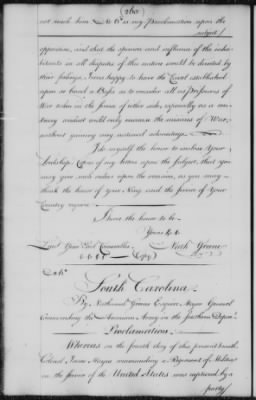 (260)
not much here No. 6th is my Proclamation upon the
subject/
opposition, and that the opinion and influence of the inha-
bitants in all disputes of this nature would be directed by
their feelings. I was happy to have the Court established
upon so broad a Basis as to consider all as Prisoners of
War taken in the service of either side, especially as a con-
trary conduct will only increase the miseries of War,
without gaining any national advantage.
I do myself the honor to enclose Your
Lordship Copies of my letters upon the subject, that you
may give such orders upon the occasion, as you may
think the honor of Your King and the service of Your
Country require.
I have the honor to be
Yours &c &c
Lieut. Genl Earl Cornwallis Nath Greene
(Copy)
No. 6th
South Carolina.
By Nathanael Greene Esquire, Major General
Commanding the American Army in the Southern Depart.
Proclamation.
Whereas on the fourth day of this present month
Colonel Isaac Hayne commanding a Regiment of Militia
in the service of the United States was captured by a
party/